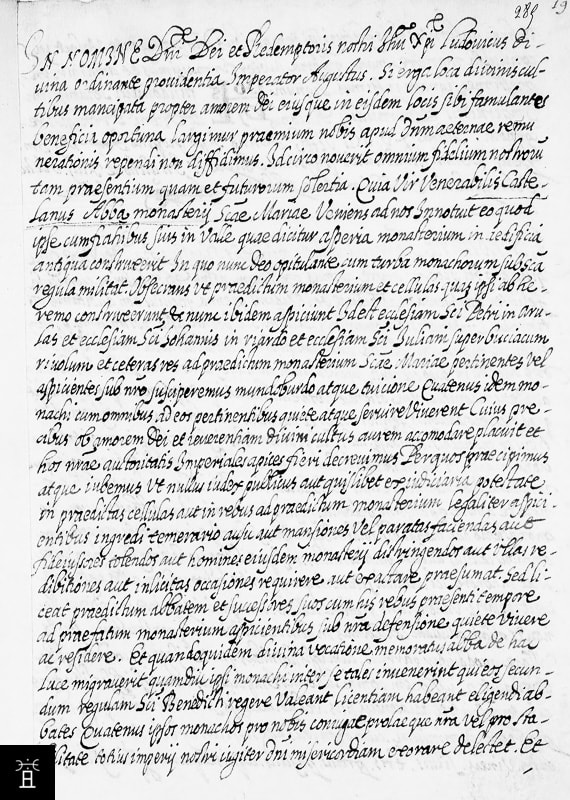 285 19
IN NOMINE Dni Dei et Redemptoris nostri Ihu Xpi Ludovicus di-
uina ordinante providentia Imperator Augustus. Si erga loca diuinis cul-
tibus mancipata propter amorem dei eiusque in eisdem locis sibi famulantes
beneficia oportuna largimur praemium nobis apud Dnm aeternae remu
nerationis rependi non diffidimus. Idcirco noverit omnium fidelium nostroru
tam praesentium quam et futurorum solertia. Quia Vir Venerabilis Caste-
lanus Abba monasterij Scae Mariae Veniens ad nos Innotuit eo quod
ipse cum fratribus suis in Valle quae dicitur asperia monasterium in aedificia
antiqua construxerit In quo nunc deo opitulante cum turba monachorum sub sca
regula militat. Obsecrans vt praedictum monasterium et cellulas quas ipsi ab he-
remo construxerunt & nunc ibidem aspiciunt Id est ecclesiam Sci Petri in aru-
las et ecclesiam Sci Iohannis in riardo et ecclesiam Sci Iuliani super buciacum
riuolum et ceteras res ad praedictum monasterium Scae Mariae pertinentes vel
aspicientes sub nro susciperemus mundoburdo atque tuicione Quatenus idem mo-
nachi cum omnibus ad eos pertinentibus quiete atque servire viverent Cuius pre-
cibus ob amorem dei et reverentiam divini cultus aurem acomodare placuit et
hos nrae autoritatis Imperiales apices fieri decrevimus Per quos praecipimus
atque iubemus Vt nullus iudex publicus aut quislibet ex iudiciaria potestate
in praedictas cellulas aut in rebus ad praedictum monasterium legaliter aspici-
entibus ingredi temerario ausu aut mansiones vel paratas faciendas aut
fideiussores tolendos aut homines eiusdem monasterij distringendos aut vllas re-
dibitiones aut inlicitas occasiones requirere aut exactare praesumat. Sed li-
ceat praedictum abbatem et sucessores suos cum his rebus praesenti tempore
ad praefatum monasterium aspicientibus sub nra defensione quiete vivere
ac residere. Et quandoquidem divina vocatione memoratus abba de hac
luce migraverit quamdiu ipsi monachi inter se tales invenerint qui eos secun-
dum regulam Sci Benedicti regere valeant licentiam habeant eligendi ab-
bates Quatenus ipsos monachos pro nobis coniuge prolaeque nra vel pro sta-
bilitate totius imperij nostri iugiter dni misericordiam exorare delectet. Et